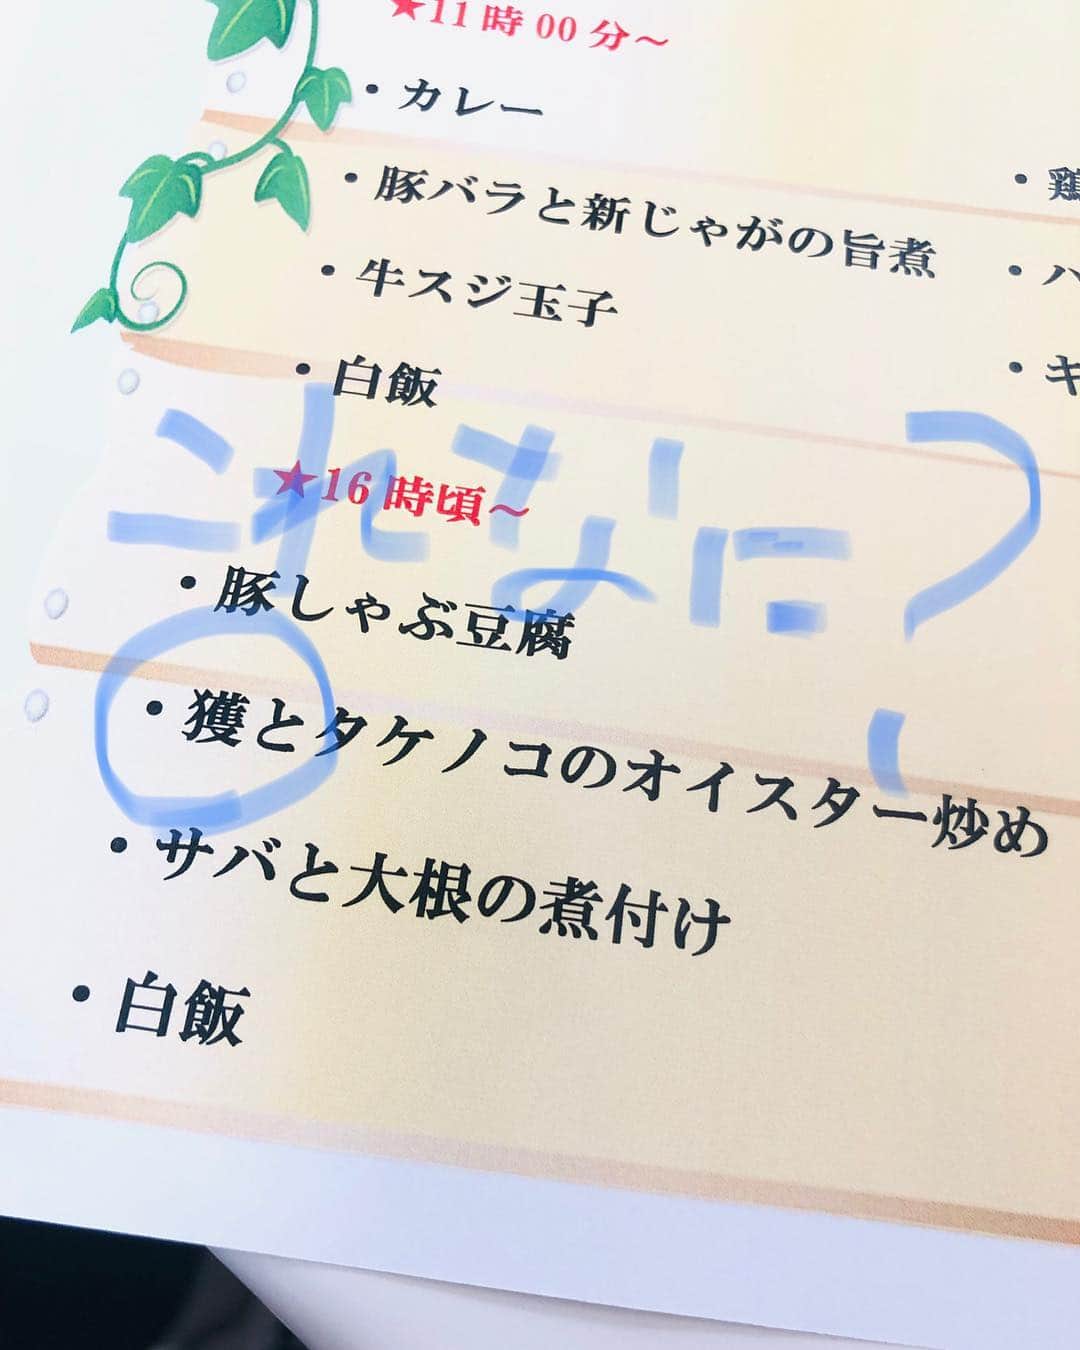 ★11時00分～
・カレー
・豚バラと新じゃがの旨煮
・鶏
・牛スジ玉子
・ハ
・白飯
・キ
これなに？
★16時頃～
・豚しゃぶ豆腐
・獲とタケノコのオイスター炒め
・サバと大根の煮付け
・白飯